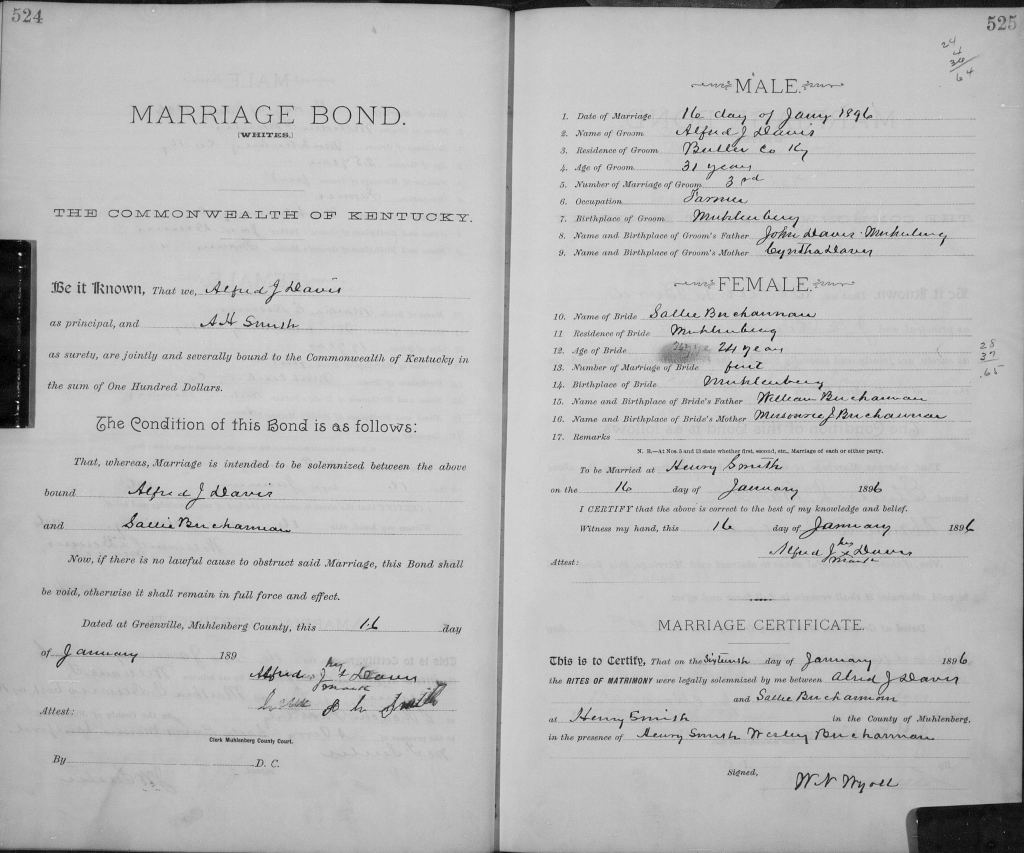 524
MARRIAGE BOND.
[WHITES.]
THE COMMONWEALTH OF KENTUCKY.
Be it Known, That we, Alfred J Davis
as principal, and A H Smith
as surety, are jointly and severally bound to the Commonwealth of Kentucky in
the sum of One Hundred Dollars.
The Condition of this Bond is as follows:
That, whereas, Marriage is intended to be solemnized between the above
bound Alfred J Davis
and Sallie Buchannan
Now, if there is no lawful cause to obstruct said Marriage, this Bond shall
be void, otherwise it shall remain in full force and effect.
Dated at Greenville, Muhlenberg County, this 16 day
of January 189
Alfred J his x mark Davis
Smith
Attest:
Clerk Muhlenberg County Court.
By D. C.
525
24
4
36
64
MALE.
1. Date of Marriage 16 day of Jany 1896
2. Name of Groom Alfred J Davis
3. Residence of Groom Butler Co Ky
4. Age of Groom 31 years
5. Number of Marriage of Groom 3rd
6. Occupation Farmer
7. Birthplace of Groom Muhlenberg
8. Name and Birthplace of Groom's Father John Davis Muhlenberg
9. Name and Birthplace of Groom's Mother Cyntha Davis
FEMALE.
10. Name of Bride Sallie Buchannan
11 Residence of Bride Muhlenberg
12. Age of Bride 24 years
13. Number of Marriage of Bride first
14. Birthplace of Bride Muhlenberg
15. Name and Birthplace of Bride's Father William Buchannan
16. Name and Birthplace of Bride's Mother J Buchannan
17. Remarks
28
37
.65
N. B.—At Nos. 5 and 13 state whether first, second, etc., Marriage of each or either party.
To be Married at Henry Smith
on the 16 day of January 1896
I CERTIFY that the above is correct to the best of my knowledge and belief.
Witness my hand, this 16 day of January 1896
Alfred J his x mark Davis
Attest:
MARRIAGE CERTIFICATE.
This is to Certify, That on the Sixteenth day of January 1896
the RITES OF MATRIMONY were legally solemnized by me between Alred J Davis
and Sallie Buchannon
at Henry Smith in the County of Muhlenberg,
in the presence of Henry Smith Wesley Bucharman
Signed,
W N Wyatt